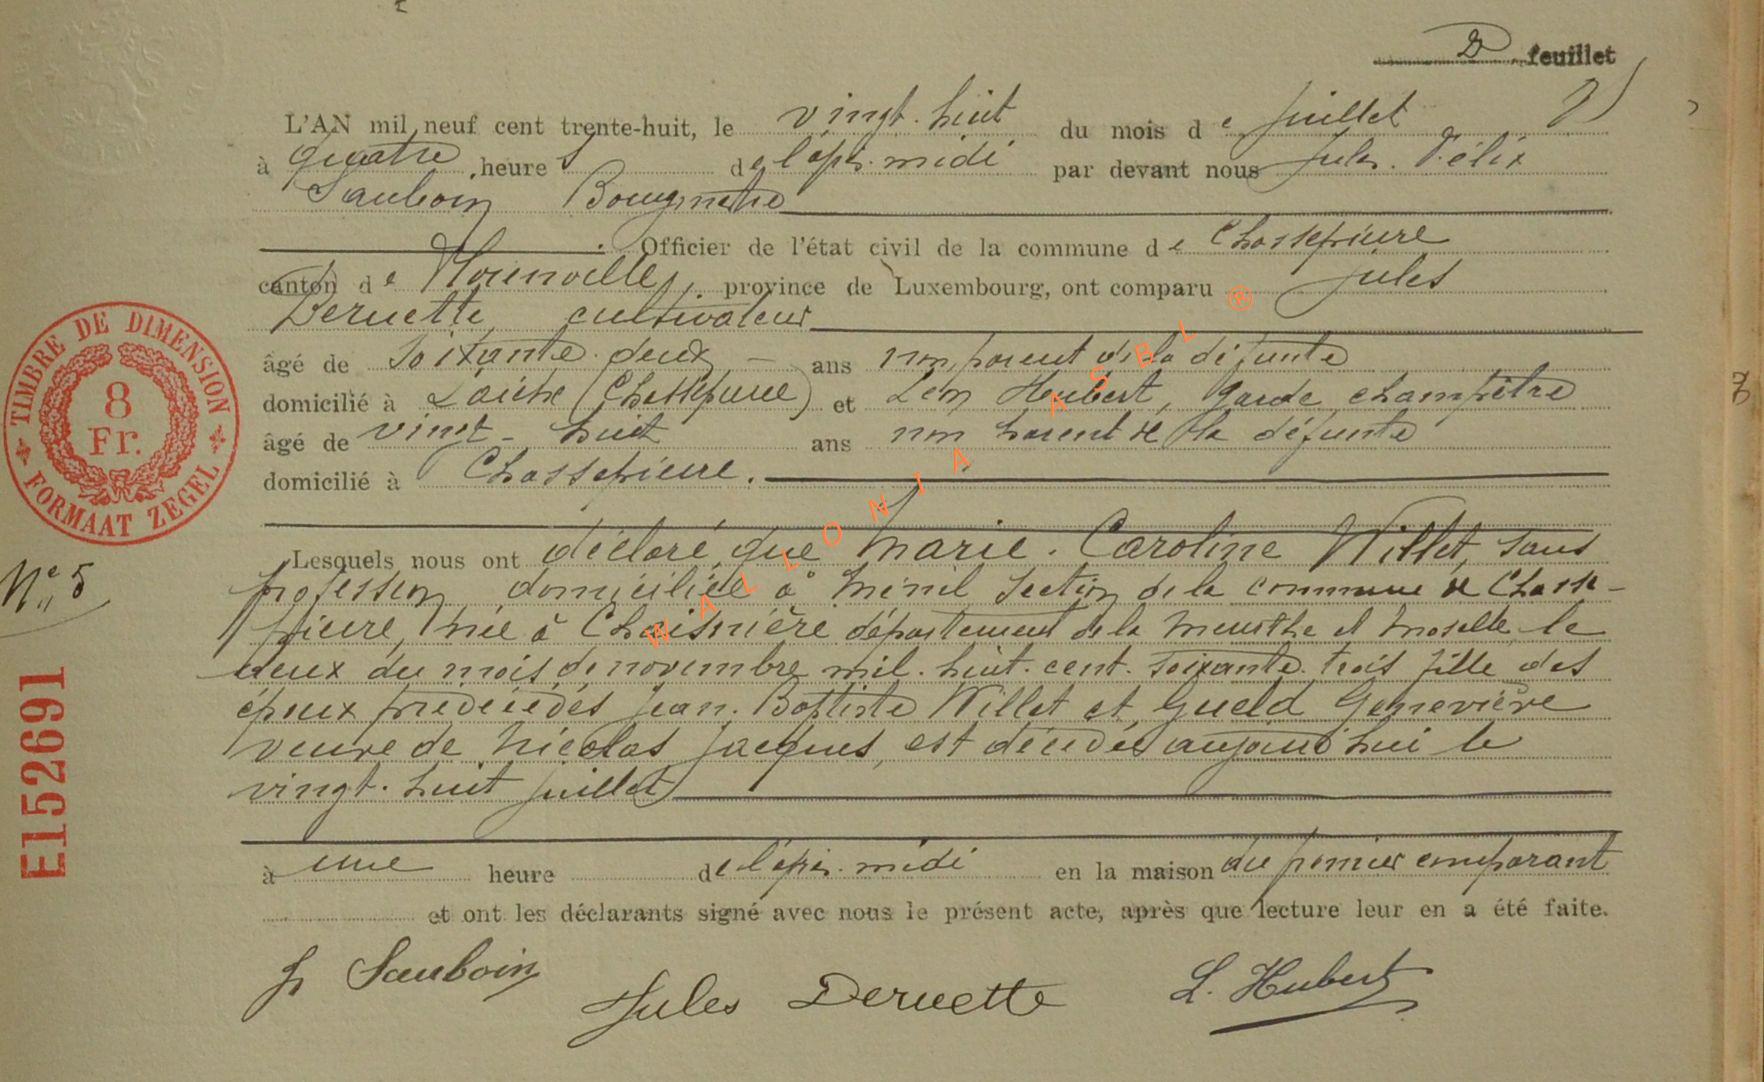 2 feuillet
L'AN mil neuf cent trente-huit, le vingt-huit du mois de Juillet
à quatre heures de l'après-midi par devant nous Jules-Félix
Sauboin Bourgmestre
Officier de l'état civil de la commune de Chassepierre
canton de Florenville, province de Luxembourg, ont comparu Jules
Deruette, cultivateur
âgé de soixante-deux ans non parent de la défunte
domicilié à Laiche (Chassepierre) et Léon Hubert, garde champêtre
âgé de vingt-huit ans non parent de la défunte
domicilié à Chassepierre.
Lesquels nous ont déclaré que Marie-Caroline Willet, sans
profession, domiciliée à Ménil section de la commune de Chasse-
pierre, née à département de la Meurthe et Moselle, le
deux du mois de novembre mil-huit-cent-soixante-trois fille des
époux prédécédés Jean-Baptiste Willet et Geneviève
veuve de Nicolas Jacques, est décédée aujourd'hui le
vingt-huit juillet
à une heure de l'après-midi en la maison du premier comparant
et ont les déclarants signé avec nous le présent acte, après que lecture leur en a été faite.
J Sauboin Jules Deruette L. Hubert
TIMBRE DE DIMENSION
8
Fr.
FORMAAT ZEGEL
No 5
E152691
WALLONIA ASBL ®